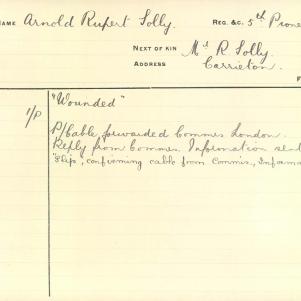 NAME Arnold Rupert Solly REG. &C. 5th Pione
NEXT OF KIN Mr R Solly.
ADDRESS Carrieton.
F
1/P "Wounded"
P/Cable forwarded Commes London.
Reply from Commes. Information sent
Slip, confirming cable from Commis, Informa